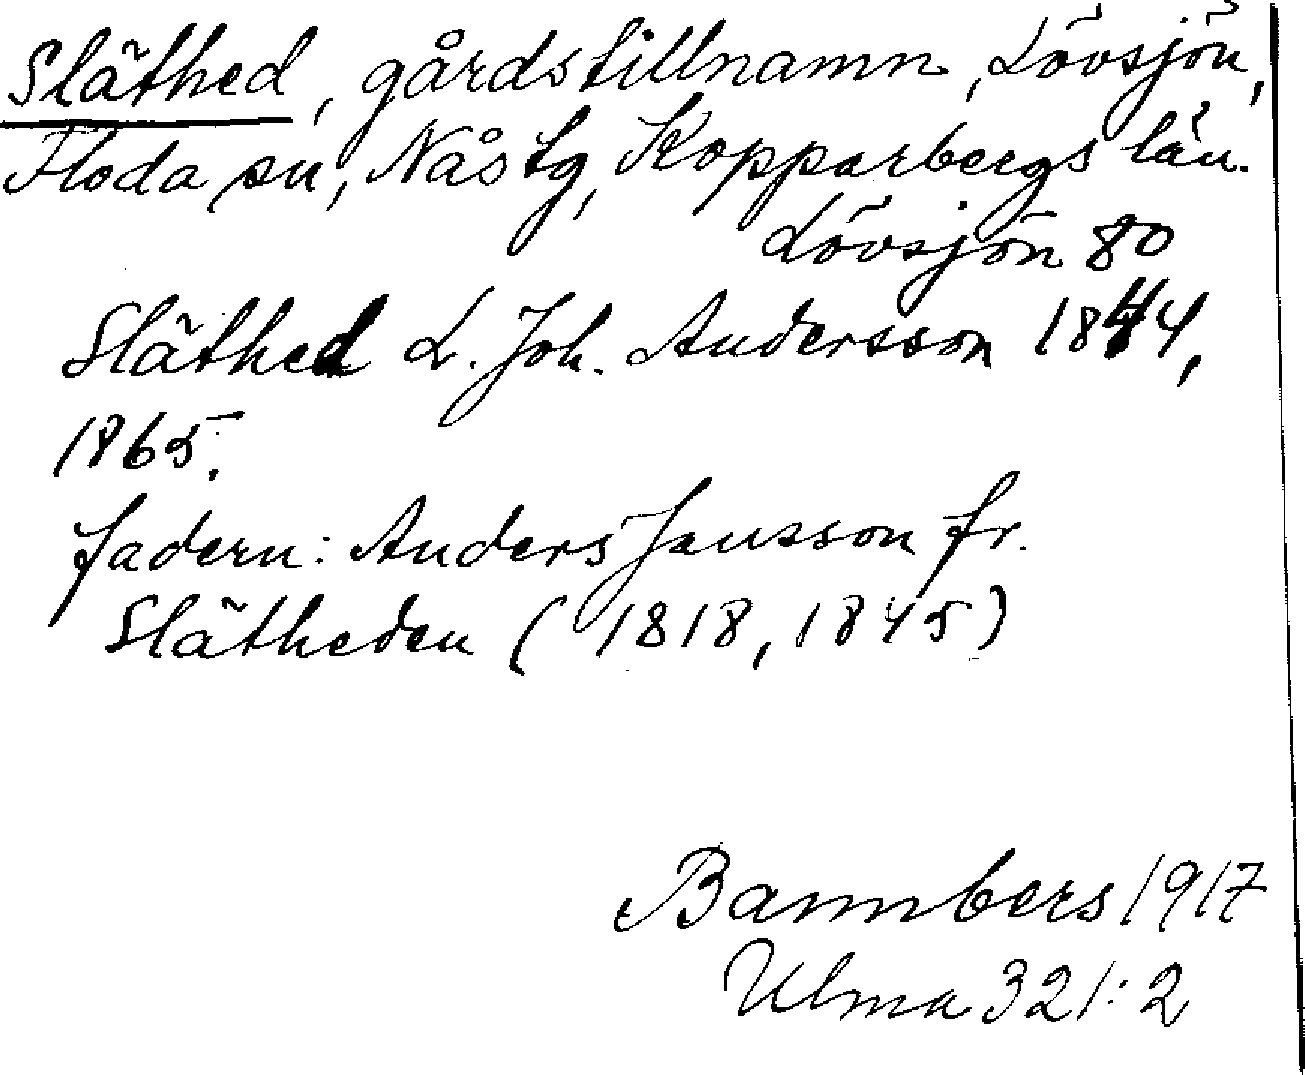 Släthed, gårdstillnamn, Lövsjön,
Floda sn, Nås tg, Kopparbergs län.
Lövsjön 80
Släthed L. Joh. Andersson 1844,
1865.
fadern: Anders Jansson fr.
Slätheden (1818, 1845)
Bannbers 1917
Ulma 321:2